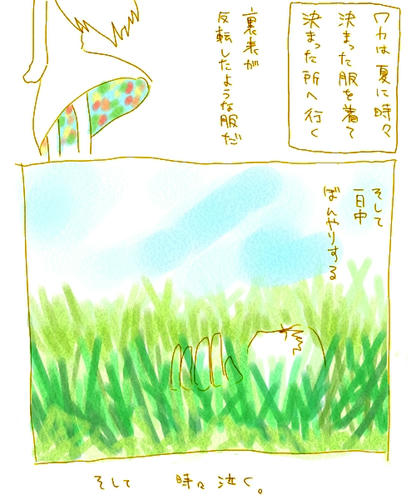 ワカは夏に時々
決まった服を着て
決まった所へ行く
裏表が
反転したような服だ
そして
一日中
ぼんやりする
そして 時々 泣く。